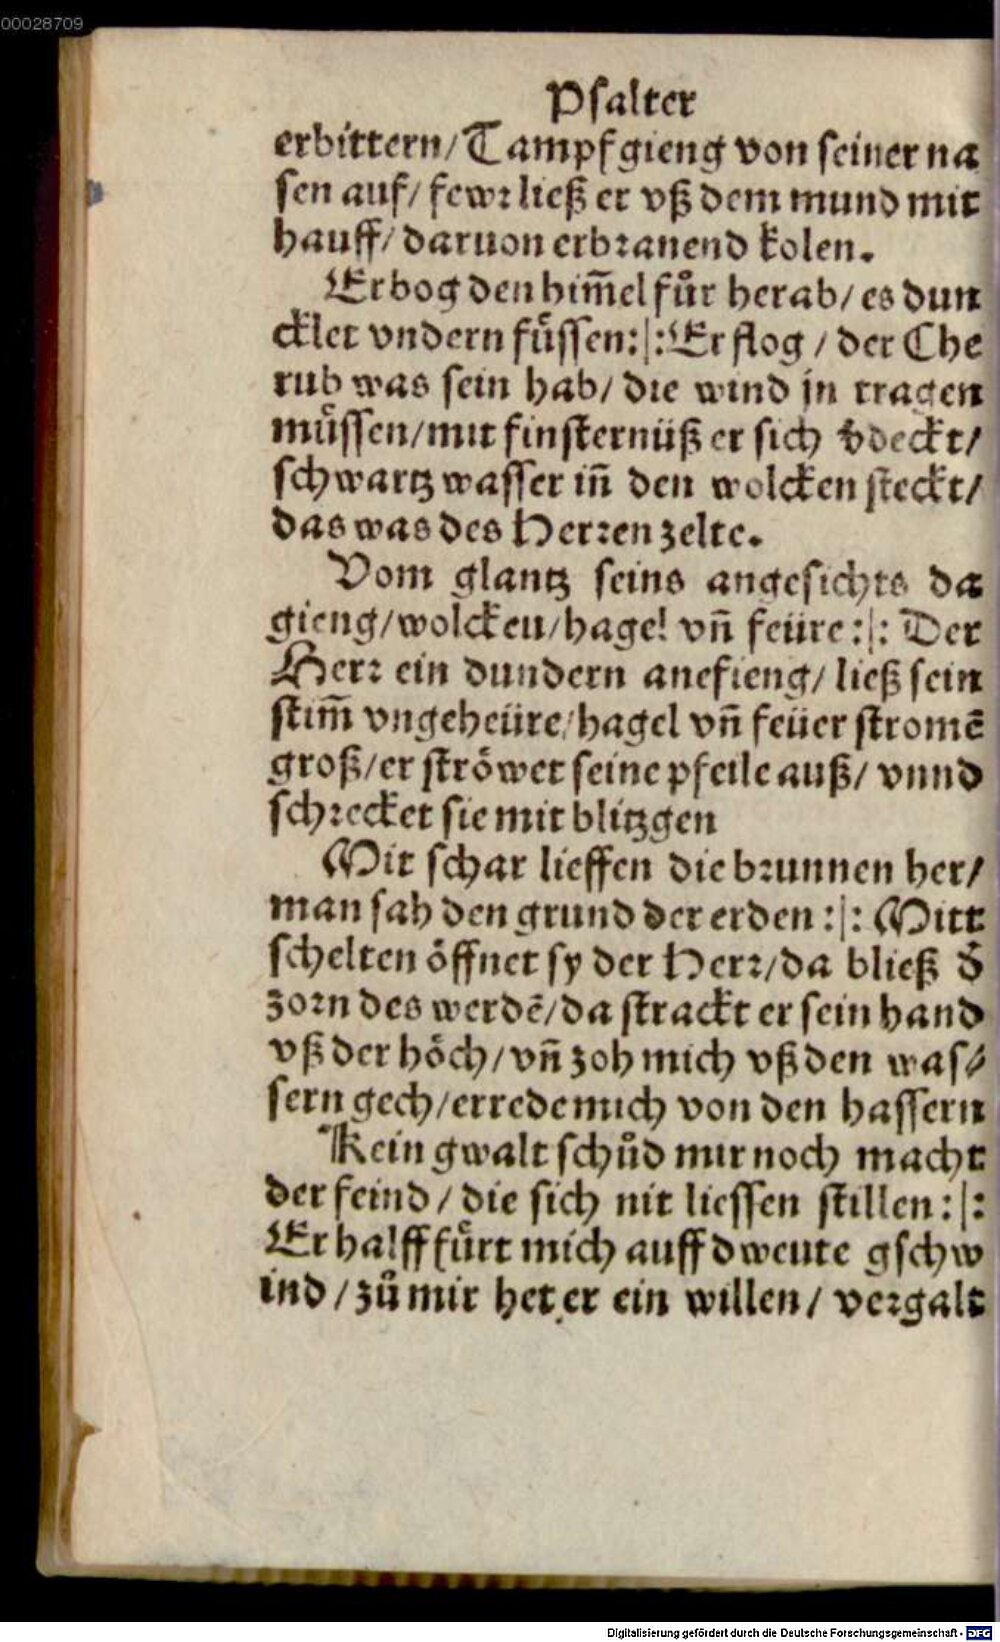 00028709
Psalter
erbittern/ Tampf gieng von seiner na
sen auf/ fewr ließ er vß dem mund mit
hauff/ daruon erbranend kolen.
Er bog den him̄el fůr herab/ es dun
cklet vndern fůssen:|:Er flog / der Che
rub was sein hab/ die wind in tragen
můssen/mit finsternüß er sich v̄deckt/
schwartz wasser iñ den wolcken steckt/
das was des Herren zelte.
Vom glantz seins angesichts da
gieng/wolcken/hagel vñ feüre:|: Der
Herr ein dundern anefieng/ ließ sein
stim̄ vngeheüre/hagel vñ feüer stromē
groß/er strȯwet seine pfeile auß/ vnnd
schrecket sie mit blitzgen
Mit schar lieffen die brunnen her/
man sah den grund der erden:|: Mitt
schelten ȯffnet sy der Herr/da bließ d̄
zorn des werdē/da strackt er sein hand
vß der hȯch/vñ zoh mich vß den was⸗
sern gech/erredemich von den hassern
Kein gwalt schůd mir noch macht
der feind/ die sich nit liessen stillen:|:
Er halff fůrt mich auff dweute gschw
ind/zů mir het er ein willen/ vergalt
Digitalisierung gefördert durch die Deutsche Forschungsgemeinschaft - DFG